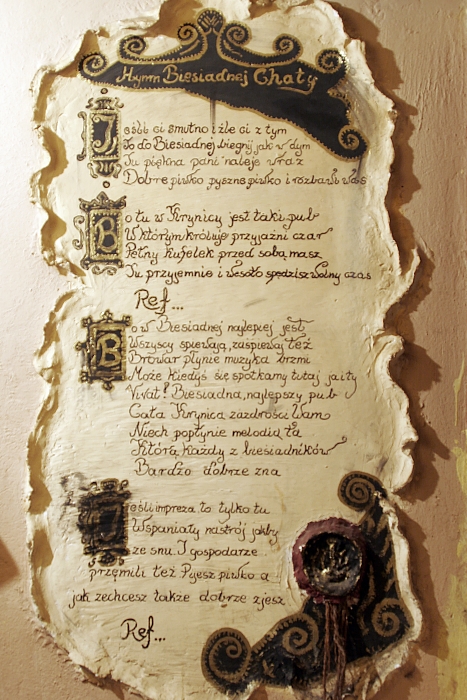 Hymn Biesiadnej Chaty
Jeśli ci smutno i źle ci z tym
To do Biesiadnej biegnij jak w dym
Tu piękna pani naleje wraz
Dobre piwko pyszne piwko i rozbawi was
Bo tu w Krynicy jest taki pub
W którym króluje przyjaźni czar
Pełny kufelek przed sobą masz
Tu przyjemnie i wesoło spędzisz wolny czas
Ref...
Bo w Biesiadnej najlepiej jest
Wszyscy śpiewają, zaśpiewaj też
Browar płynie muzyka brzmi
Może kiedyś się spotkamy tutaj ja i ty
Vivat! Biesiadna, najlepszy pub
Cała Krynica zazdrości Wam
Niech popłynie melodia ta
Którą każdy z biesiadników
Bardzo dobrze zna
Jeśli impreza to tylko tu
Wspaniały nastrój jakby
ze snu. I gospodarze
przemili też Pijesz piwko a
jak zechcesz także dobrze zjesz
Ref...